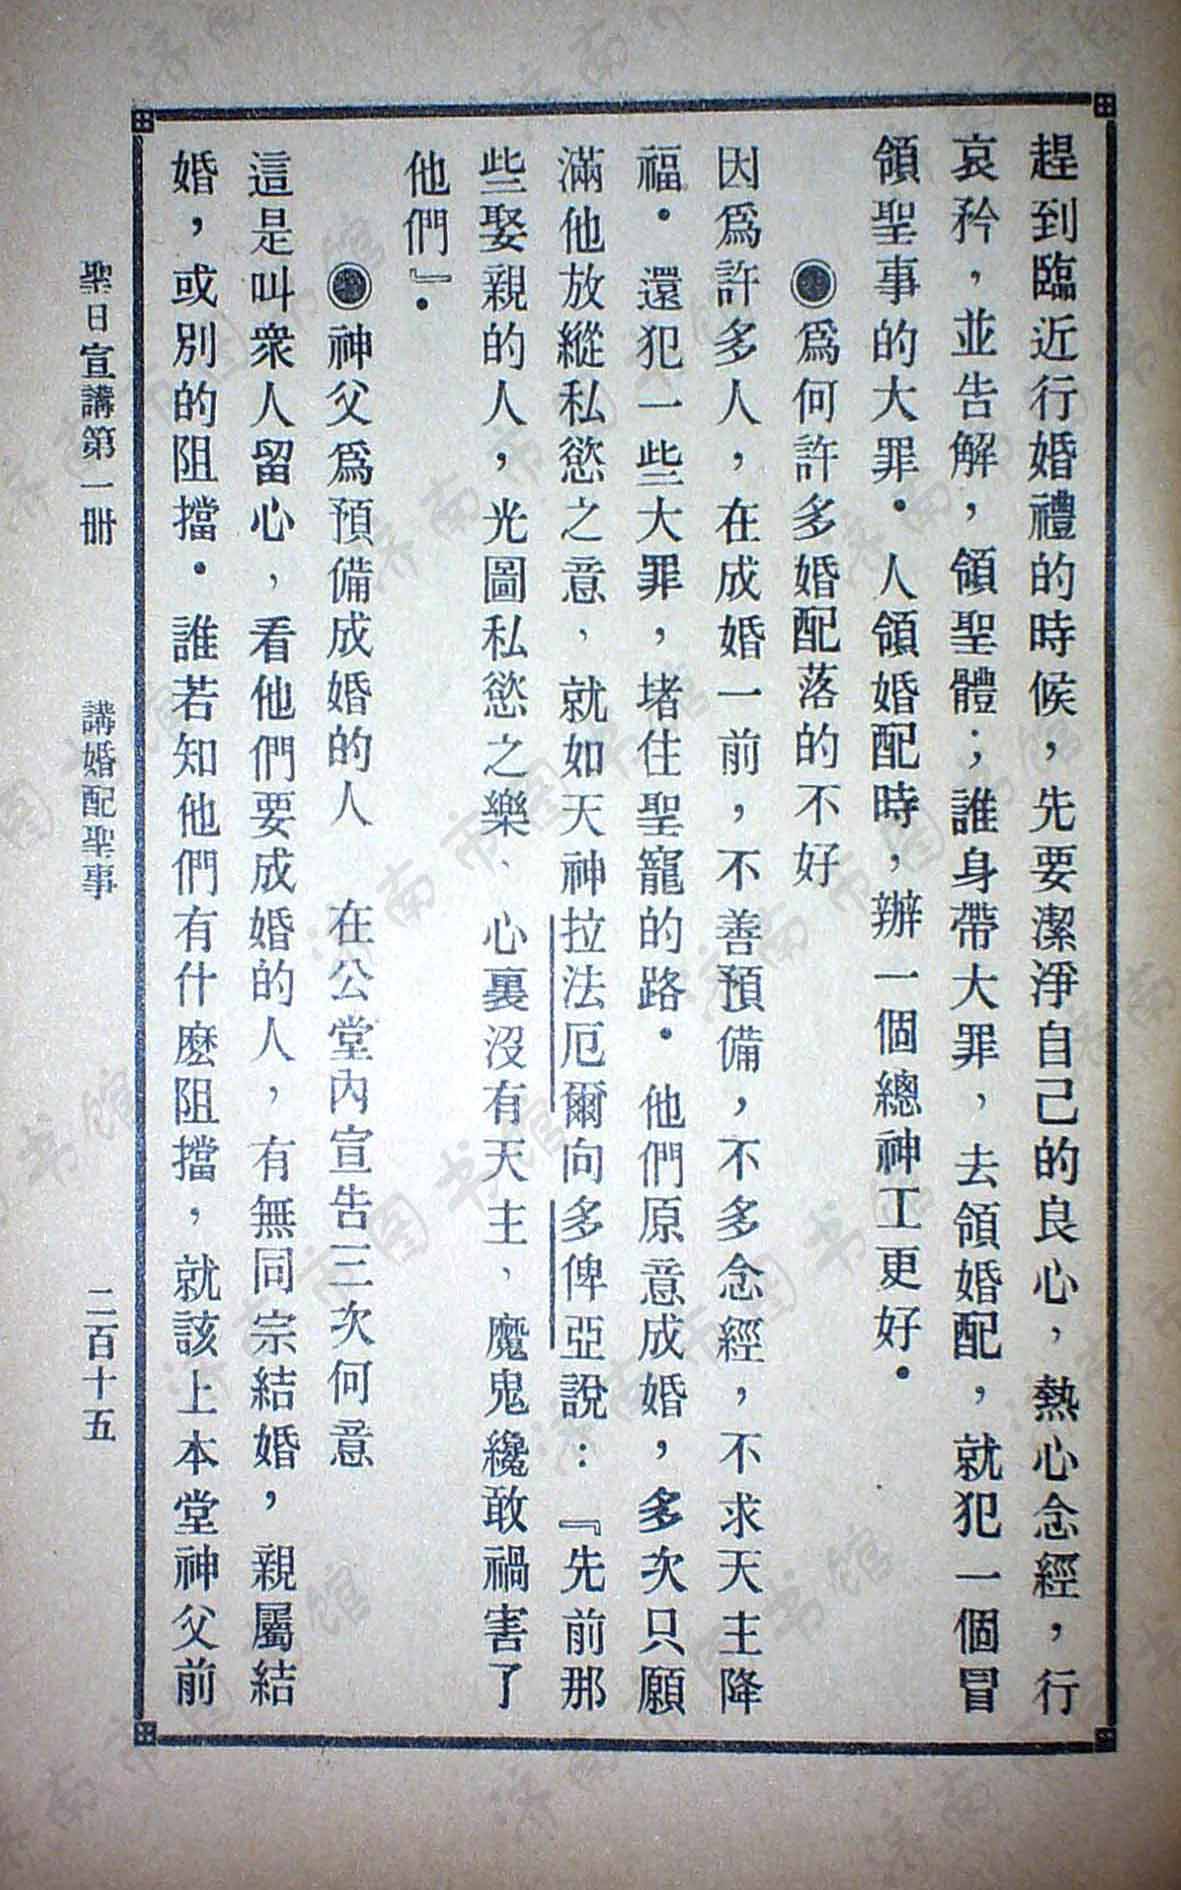 趕到臨近行婚禮的時候，先要潔淨自己的良心，熱心念經，行
哀矜，並告解，領聖體；誰身帶大罪，去領婚配，就犯一個冒
領聖事的大罪．人領婚配時，辦一個總神工更好．
◉爲何許多婚配落的不好
因爲許多人，在成婚一前，不善預備，不多念經，不求天主降
福．還犯一些大罪，堵住聖寵的路．他們原意成婚，多次只願
滿他放縱私慾之意，就如天神拉法厄爾向多俾亞說：『先前那
些娶親的人，光圖私慾之樂、心裏沒有天主，魔鬼纔敢禍害了
他們』．
◉神父爲預備成婚的人　在公堂內宣告三次何意
這是叫衆人留心，看他們要成婚的人，有無同宗結婚，親屬結
婚，或別的阻擋．誰若知他們有什麽阻擋，就該上本堂神父前
聖日宣講第一册　講婚配聖事　二百十五
济南市图书馆